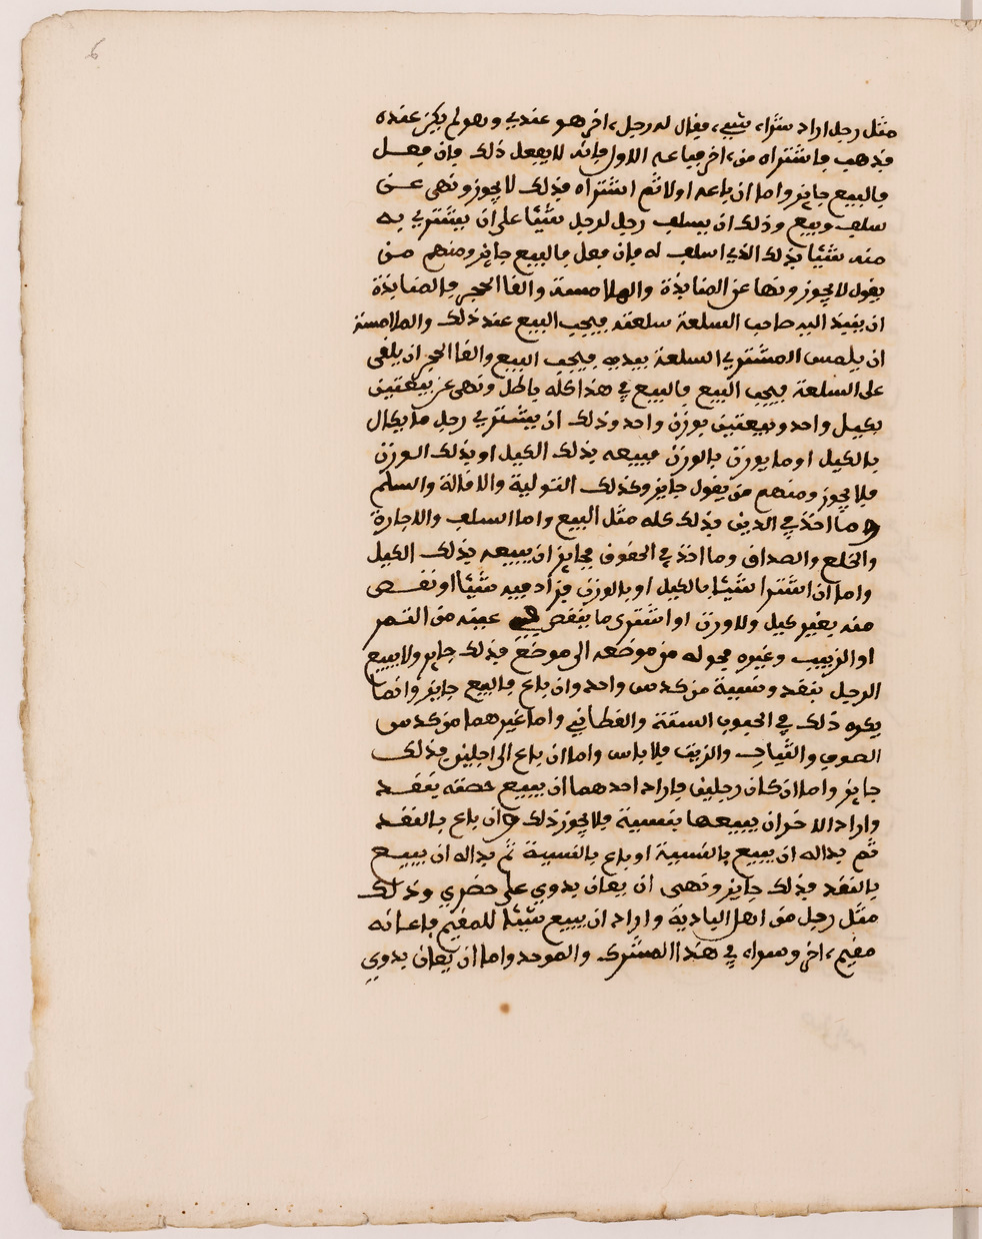 6
مثل رجل اراد شراء شيء، فقال له رجل، اخر هو عندي وهو لم يكن عنده
فذهب فاشتراه من، اخر فباعه الاول فانه لا يفعل ذلك فان فعل
فالبيع جايز واما ان باعه اولا ثم اشتراه فذلك لا يجوز ونهى عن
سلف وبيع وذلك ان يسلف رجل لرجل شيئا على ان يشتري به
منه شيئا بذلك الذي اسلف له فان فعل فالبيع جايز ومنهم من
يقول لا يجوز ونها عن المنابذة والملامسة والقا الحجر فالمنابذة
ان ينبذ اليه صاحب السلعة سلعته فيجب البيع عند ذلك والملامسة
ان يلمس المشتري السلعة بيديه فيجب البيع والقا الحجر ان يلقى
على السلعة فيجب البيع فالبيع في هذا كله باطل ونهى عن بيعتين
بكيل واحد وبيعتين بوزن واحد وذلك ان يشتري رجل ما يكال
بالكيل او ما يوزن بالوزن فيبيعه بذلك الكيل او بذلك الوزن
فلا يجوز ومنهم من يقول جايز وكذلك التولية والاقالة والسلم
وما اخذ في الدين فذلك كله مثل البيع واما السلف والاجارة
والخلع والصداق وما اخذ في الحقوق فجايز ان يبيعه بذلك الكيل
واما ان اشترا شيئا بالكيل او بالوزن فزاد فيه شيئا او نقص
منه بغير كيل ولا وزن او اشترى ما ينقص عينه من التمر
او الزبيب وغيره فحوله من موضعه الى موضع فذلك جايز ولا يبيع
الرجل بنقد ونسية من كدس واحد وان باع فالبيع جايز وانما
يكره ذلك في الحبوب الستة والقطاني واما غيرهما من كدس
الصوف والثياب والزيت فلا باس واما ان باع الى اجلين فذلك
جايز واما ان كان رجلين فاراد احدهما ان يبيع حصته بنقد
واراد الاخر ان يبيعها بنسية فلا يجوز ذلك وان باع بالنقد
ثم بدا له ان يبيع بالنسية او باع بالنسية ثم بدا له ان يبيع
بالنقد فذلك جايز ونهى ان يعان بدوي على حضري وذلك
مثل رجل من اهل البادية واراد ان يبيع شيئا للمقيم فاعانه
مقيم، اخر وسواء في هذا المشرك والموحد واما ان يعان بدوي